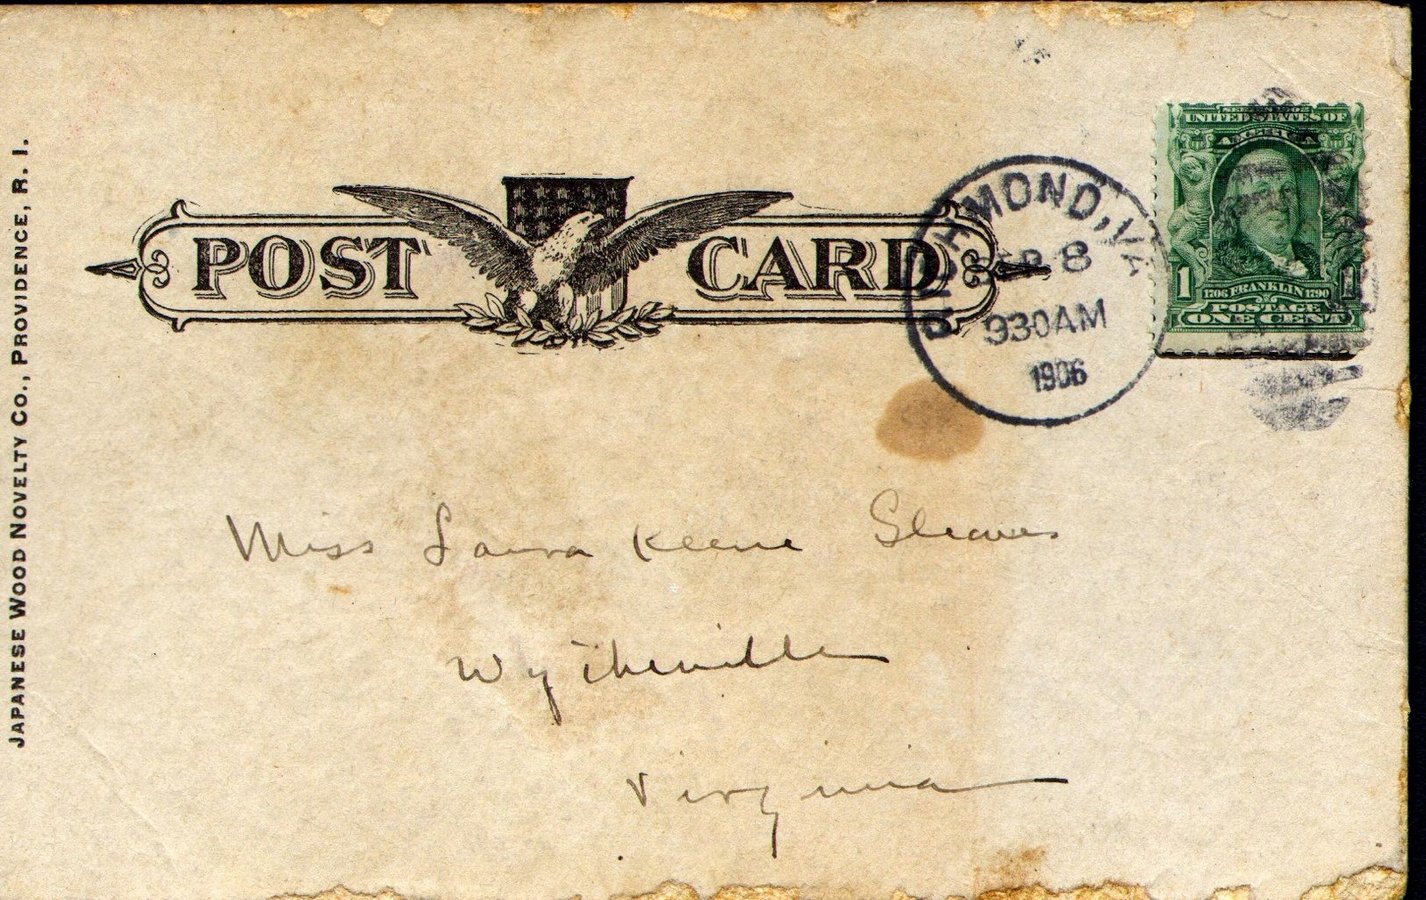 JAPANESE WOOD NOVELTY CO., PROVIDENCE, R. I.
POST CARD
RICHMOND, VA
8
930AM
1906
SERIES 1902
UNITED STATES OF
AMERICA
1 1706 FRANKLIN 1790 1
POSTAGE
ONE CENT
Miss Laura Keene Sleaves
Wytheville
Virginia